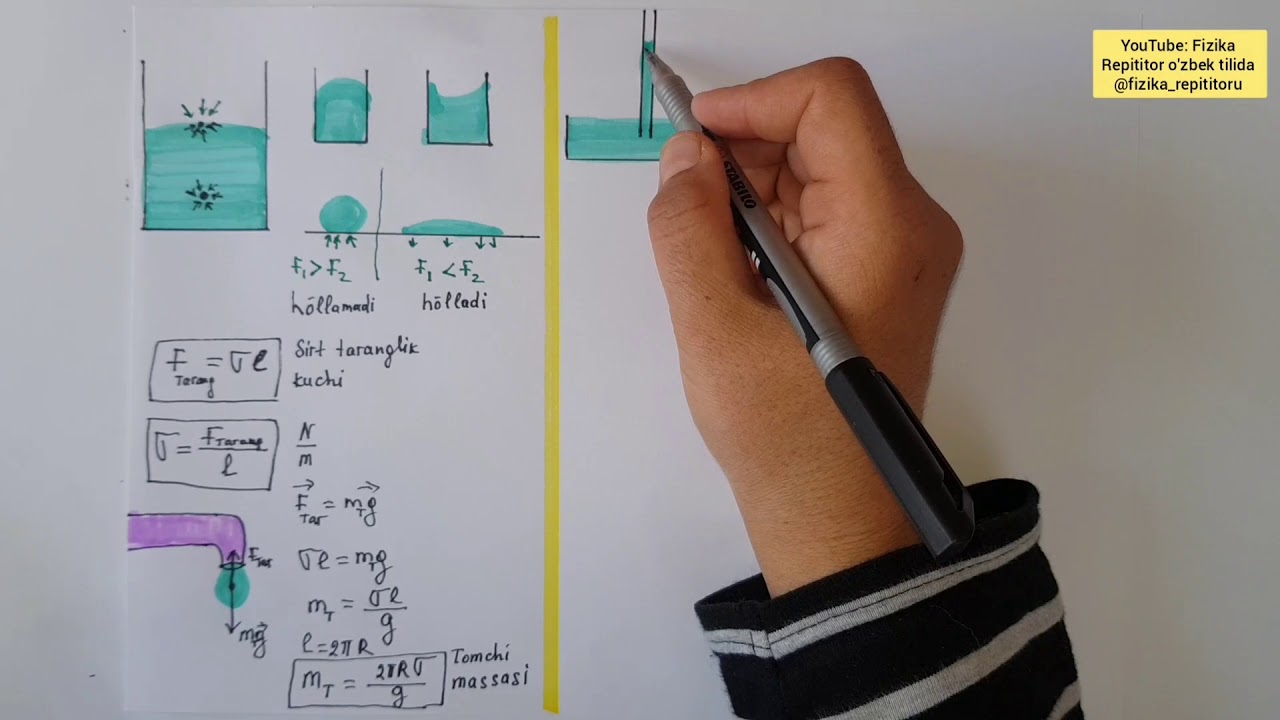 YouTube: Fizika
Repititor o'zbek tilida
@fizika_repititoru
F₁ > F₂
F₁ < F₂
hōllamadi
hōlladi
F Tarang = σℓ
Sirt taranglik
kuchi
σ = F Tarang / ℓ
N/m
F⃗ Tar = m_T g⃗
F Tar
σℓ = m_T g
m_T = σℓ / g
mg⃗
ℓ = 2πR
m_T = 2πRσ / g
Tomchi
massasi
STABILO